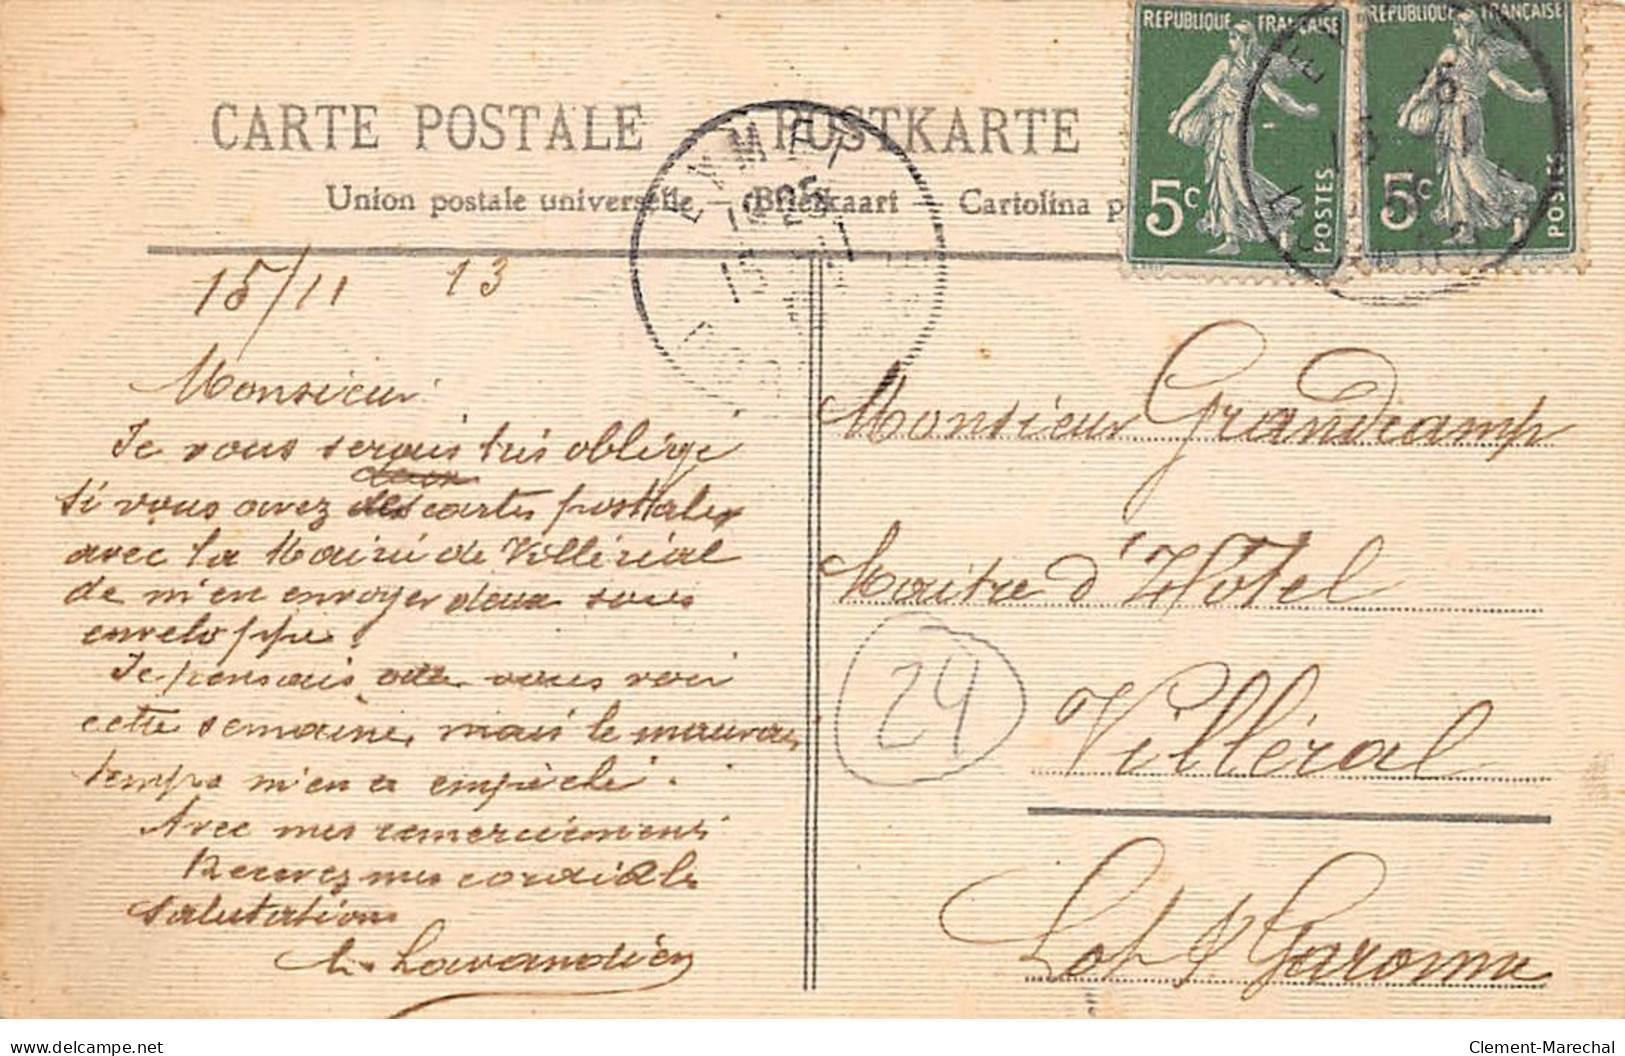 CARTE POSTALE POSTKARTE
Union postale universelle — Briefkaart — Cartolina p
REPUBLIQUE FRANÇAISE
5c
POSTES
REPUBLIQUE FRANÇAISE
5c
POSTES
EYMET
15/11 13
Monsieur
Je vous serais très obligé
si vous avez des cartes posttales
avec la Mairie de Villeréal
de m'en envoyer deux sous
enveloppe.
Je pensais vous voir
cette semaine, mais le mauvais
temps m'en a empèché.
Avec mes remerciements
Recevez mes cordiale
Salutations
Lavandier
Monsieur Grandcamp
Maitre d'Hotel
Villéral
Lot & Garonne
24
delcampe.net
Clement-Marechal